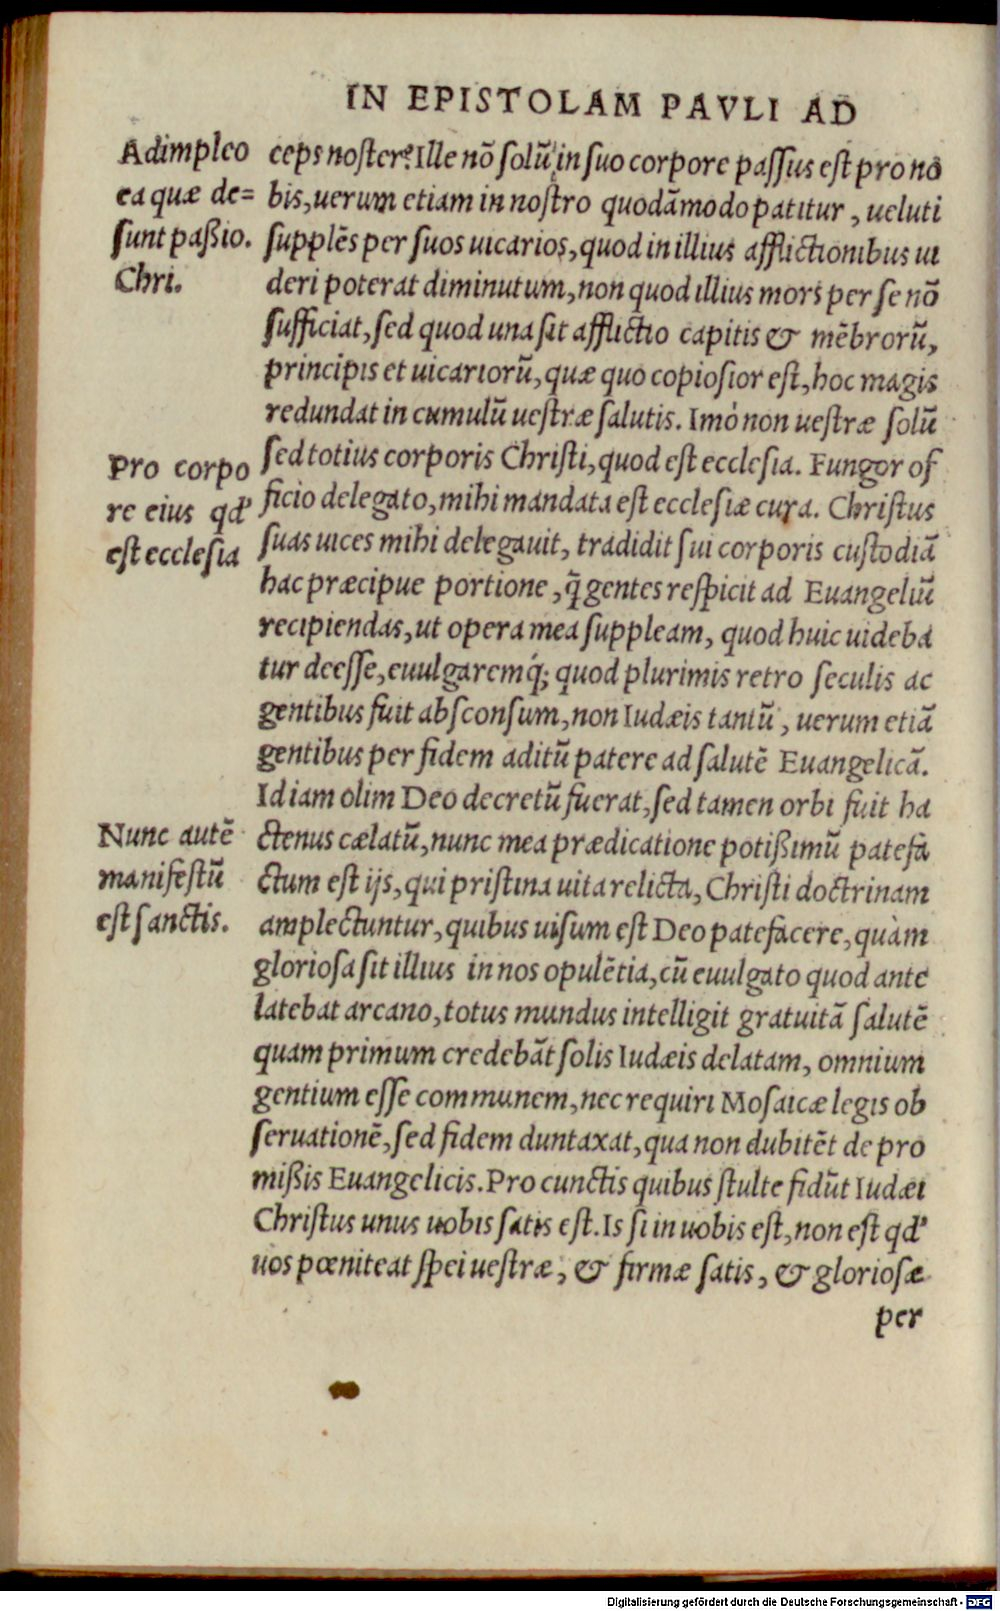 IN EPISTOLAM PAVLI AD
Adimpleo
ea quæ de=
sunt paßio.
Chri.
ceps noster? Ille nō solū in suo corpore passus est pro no
bis, uerum etiam in nostro quodāmodo patitur, ueluti
supplēs per suos uicarios, quod in illius afflictionibus ui
deri poterat diminutum, non quod illius mors per se nō
sufficiat, sed quod una sit afflictio capitis & mēbrorū,
principis et uicariorū, quæ quo copiosior est, hoc magis
redundat in cumulū uestræ salutis. Imò non uestræ solū
Pro corpo
re eius qd'
est ecclesia
sed totius corporis Christi, quod est ecclesia. Fungor of
ficio delegato, mihi mandata est ecclesiæ cura. Christus
suas uices mihi delegauit, tradidit sui corporis custodiā
hac præcipue portione, q̄ gentes respicit ad Euangeliū
recipiendas, ut opera mea suppleam, quod huic uideba
tur deesse, euulgaremq́; quod plurimis retro seculis ac
gentibus fuit absconsum, non Iudæis tantū, uerum etiā
gentibus per fidem aditū patere ad salutē Euangelicā.
Id iam olim Deo decretū fuerat, sed tamen orbi fuit ha
Nunc autē
manifestū
est sanctis.
ctenus cælatū, nunc mea prædicatione potißimū patefa
ctum est ijs, qui pristina uita relicta, Christi doctrinam
amplectuntur, quibus uisum est Deo patefacere, quàm
gloriosa sit illius in nos opulētia, cū euulgato quod ante
latebat arcano, totus mundus intelligit gratuitā salutē
quam primum credebāt solis Iudæis delatam, omnium
gentium esse communem, nec requiri Mosaicæ legis ob
seruationē, sed fidem duntaxat, qua non dubitēt de pro
mißis Euangelicis. Pro cunctis quibus stulte fidūt Iudæi
Christus unus uobis satis est. Is si in uobis est, non est qd'
uos pœniteat spei uestræ, & firmæ satis, & gloriosæ
per
Digitalisierung gefördert durch die Deutsche Forschungsgemeinschaft - DFG